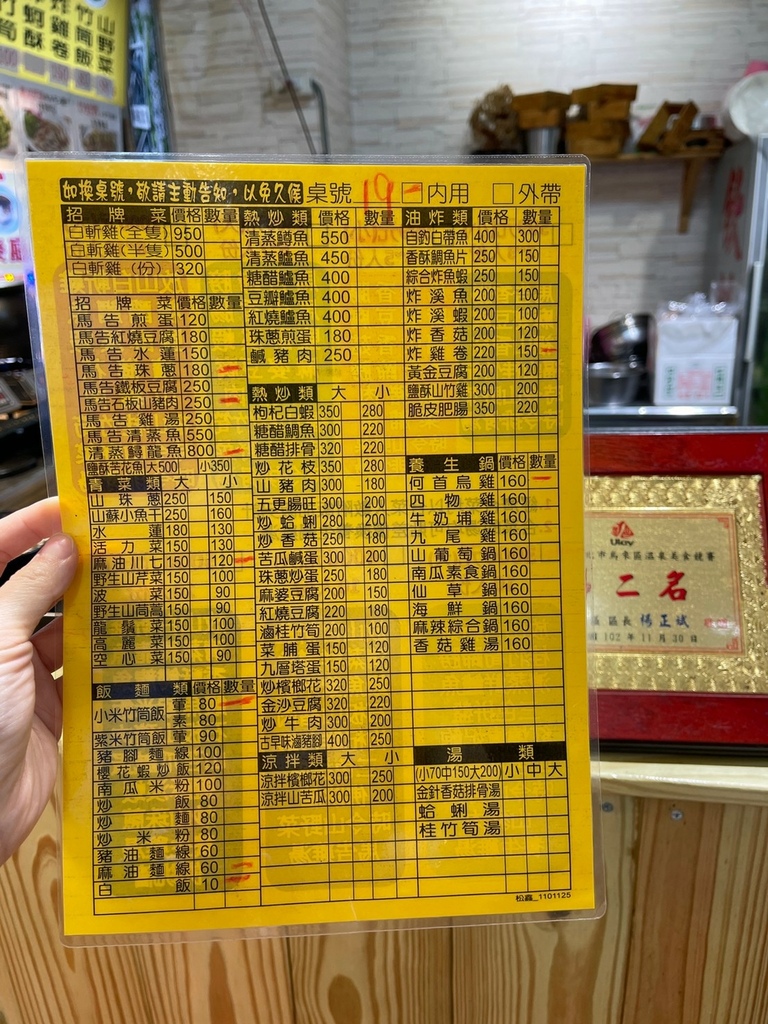 如換桌號，敬請主動告知，以免久候 桌號 19 內用 外帶
招牌菜 價格 數量
白斬雞(全隻) 950
白斬雞(半隻) 500
白斬雞(份) 320
招牌菜 價格 數量
馬告煎蛋 120
馬告紅燒豆腐 180
馬告水蓮 150
馬告珠蔥 180
馬告鐵板豆腐 250
馬告石板山豬肉 250
馬告雞湯 250
馬告清蒸魚 550
清蒸鱘龍魚 800
鹽酥苦花魚 大500 小350
青菜類 大 小
山珠蔥 250 150
山蘇小魚干 250 160
水蓮 180 130
活力菜 150 130
麻油川七 150 120
野生山芹菜 150 100
波菜 150 90
野生山茼萵 150 90
龍鬚菜 150 100
高麗菜 150 100
空心菜 150 90
飯麵類 價格 數量
小米竹筒飯 葷 80
素 80
紫米竹筒飯 葷 90
豬腳麵線 100
櫻花蝦炒飯 120
南瓜米粉 100
炒飯 80
炒麵 80
炒米粉 80
豬油麵線 60
麻油麵線 60
白飯 10
熱炒類 價格 數量
清蒸鱒魚 550
清蒸鱸魚 450
糖醋鱸魚 400
豆瓣鱸魚 400
紅燒鱸魚 400
珠蔥煎蛋 180
鹹豬肉 250
熱炒類 大 小
枸杞白蝦 350 280
糖醋鯛魚 300 220
糖醋排骨 320 220
炒花枝 350 280
山豬肉 300 180
五更腸旺 300 200
炒蛤蜊 280 200
炒香菇 250 180
苦瓜鹹蛋 300 200
珠蔥炒蛋 250 180
麻婆豆腐 200 150
紅燒豆腐 220 180
滷桂竹筍 200 100
菜脯蛋 150 120
九層塔蛋 150 120
炒檳榔花 320 250
金沙豆腐 320 220
炒牛肉 300 200
古早味滷豬腳 400 250
涼拌類 大 小
涼拌檳榔花 300 250
涼拌山苦瓜 300 200
油炸類 價格 數量
自釣白帶魚 400 300
香酥鯛魚片 250 150
綜合炸魚蝦 250 150
炸溪魚 200 100
炸溪蝦 200 100
炸香菇 200 120
炸雞卷 220 150
黃金豆腐 200 120
鹽酥山竹雞 300 200
脆皮肥腸 350 220
養生鍋 價格 數量
何首烏雞 160
四物雞 160
牛奶埔雞 160
九尾雞 160
山葡萄鍋 160
南瓜素食鍋 160
仙草鍋 160
海鮮鍋 160
麻辣綜合鍋 160
香菇雞湯 160
湯類
(小70中150大200) 小 中 大
金針香菇排骨湯
蛤蜊湯
桂竹筍湯
松鑫_1101125
Ulay
二名
區長 楊正斌
102年11月30日